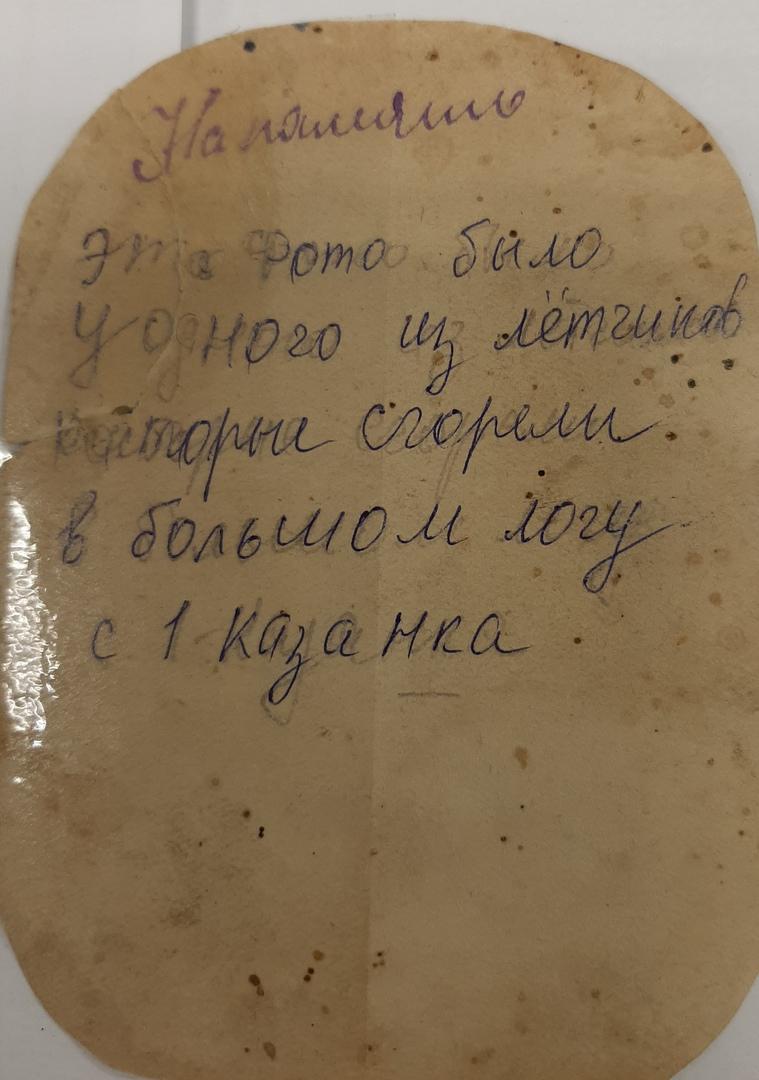 На память
Это фото было
У одного из лётчиков
которые сгорели
в большом логу
с 1 Казанка